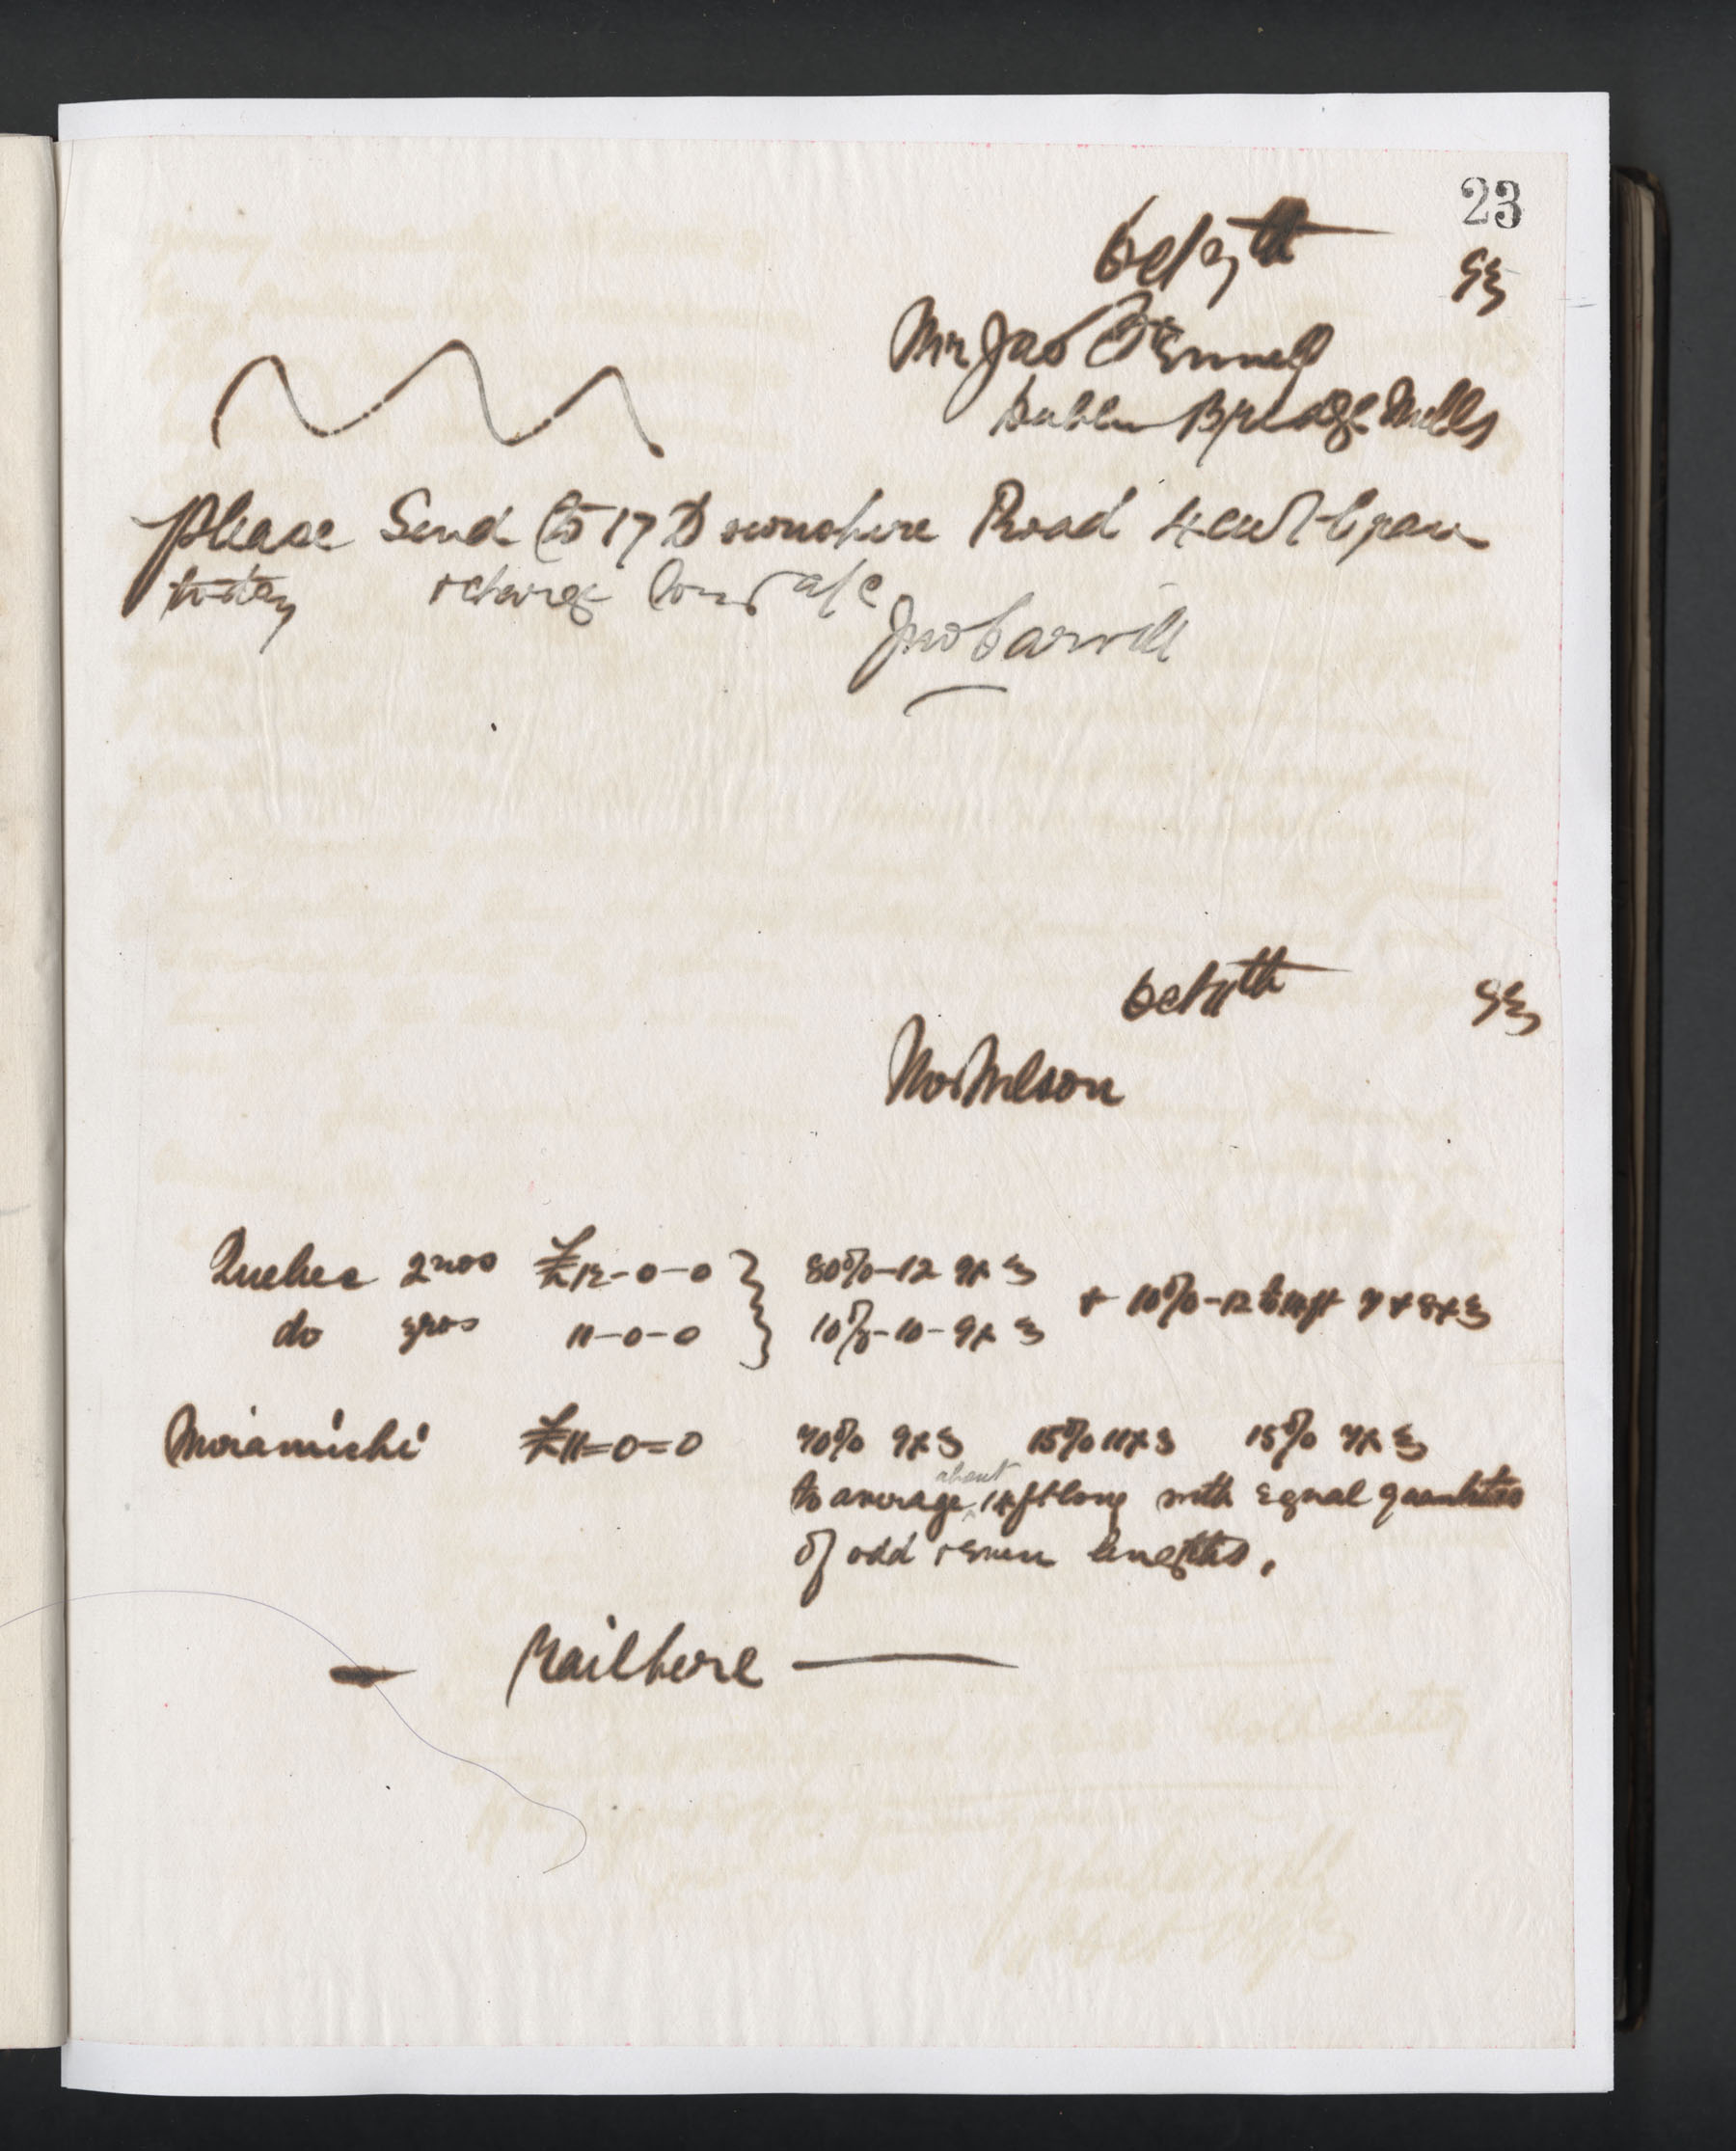 23
Oct 7th 93
Mr Jas Fennell
Dublin Bridge Mills
Please Send to 17 Devonshire Road 4 cwt Bran
today & charge Convt a/c
Jno Carvill
Oct 11th 93
Mr Nelson
Quebec 2nds £12-0-0 80%-12 9x3 & 10%-12 7x3 8x3
do 3rds 11-0-0 10%-10-9x3
Miramichi £11=0=0 70% 9x3 15% 11x3 15% 7x3
to average about ft long with equal quantities
of odd & even lengths.
Rail here